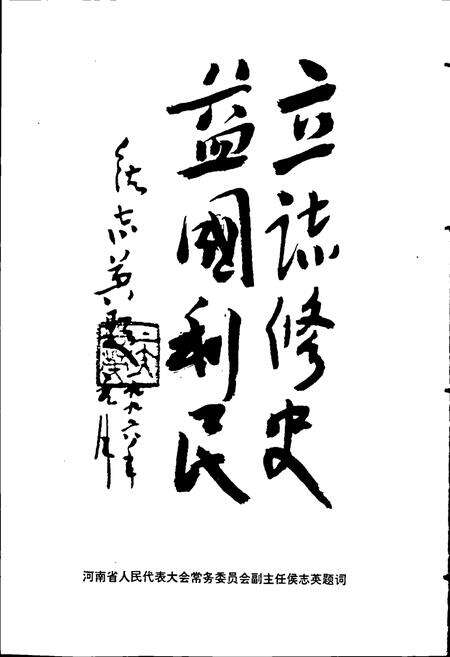 立誌修史
益國利民
侯志英題
一九九六年元月
河南省人民代表大会常务委员会副主任侯志英题词